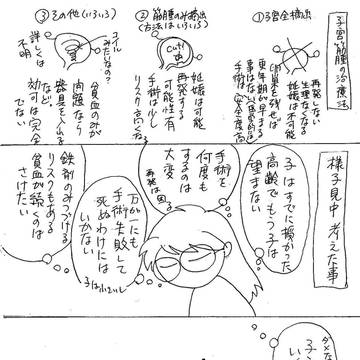 子宮筋腫の治療法
①子宮全摘出
再発しない
生理なくなる
妊娠は不可能
卵巣を残せば
更年期が早まる
事はない(基本的に)
手術は安全度高
②筋腫のみ摘出
(方法はいろいろ)
Cut!
妊娠は可能
再発する
可能性有
手術は少し
リスク高くなる
③その他(いろいろ)
コイル
みたいなの?
詳しくは
不明
貧血のみが
問題なら
器具を入れる
など。
効果は完全
でない
様子見中 考えた事
子はすでに授かった
高齢でもう子は
望まない
手術を
何度も
するのは
大変
再発は困る
万が一にも
手術失敗して
死ぬわけには
いかない
子は小さいし
鉄剤のみつづける
リスクもある
貧血が続くのは
さけたい
ダメな